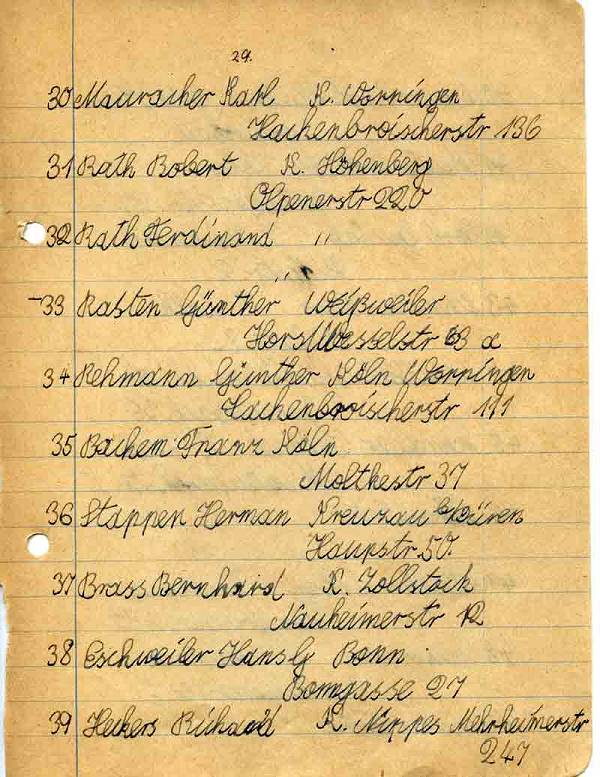 29.
30 Mauracher Karl K. Worringen
Hackenbroicherstr 136
31 Rath Robert K. Höhenberg
Olpenerstr 220
32 Rath Ferdinand "
"
-33 Rasten Günther Weißweiler
Horst Wesselstr 63 a
34 Rehmann Günther Köln Worringen
Hackenbroicherstr 111
35 Bachem Franz Köln
Moltkestr 37
36 Stappen Herman Kreuzau b/Düren
Haupstr. 50.
37 Brass Bernhard K. Zollstock
Nauheimerstr 12
38 Eschweiler Hans G Bonn.
Bomgasse 27
39 Heckers Richard K. Nippes Mehrheimerstr
247